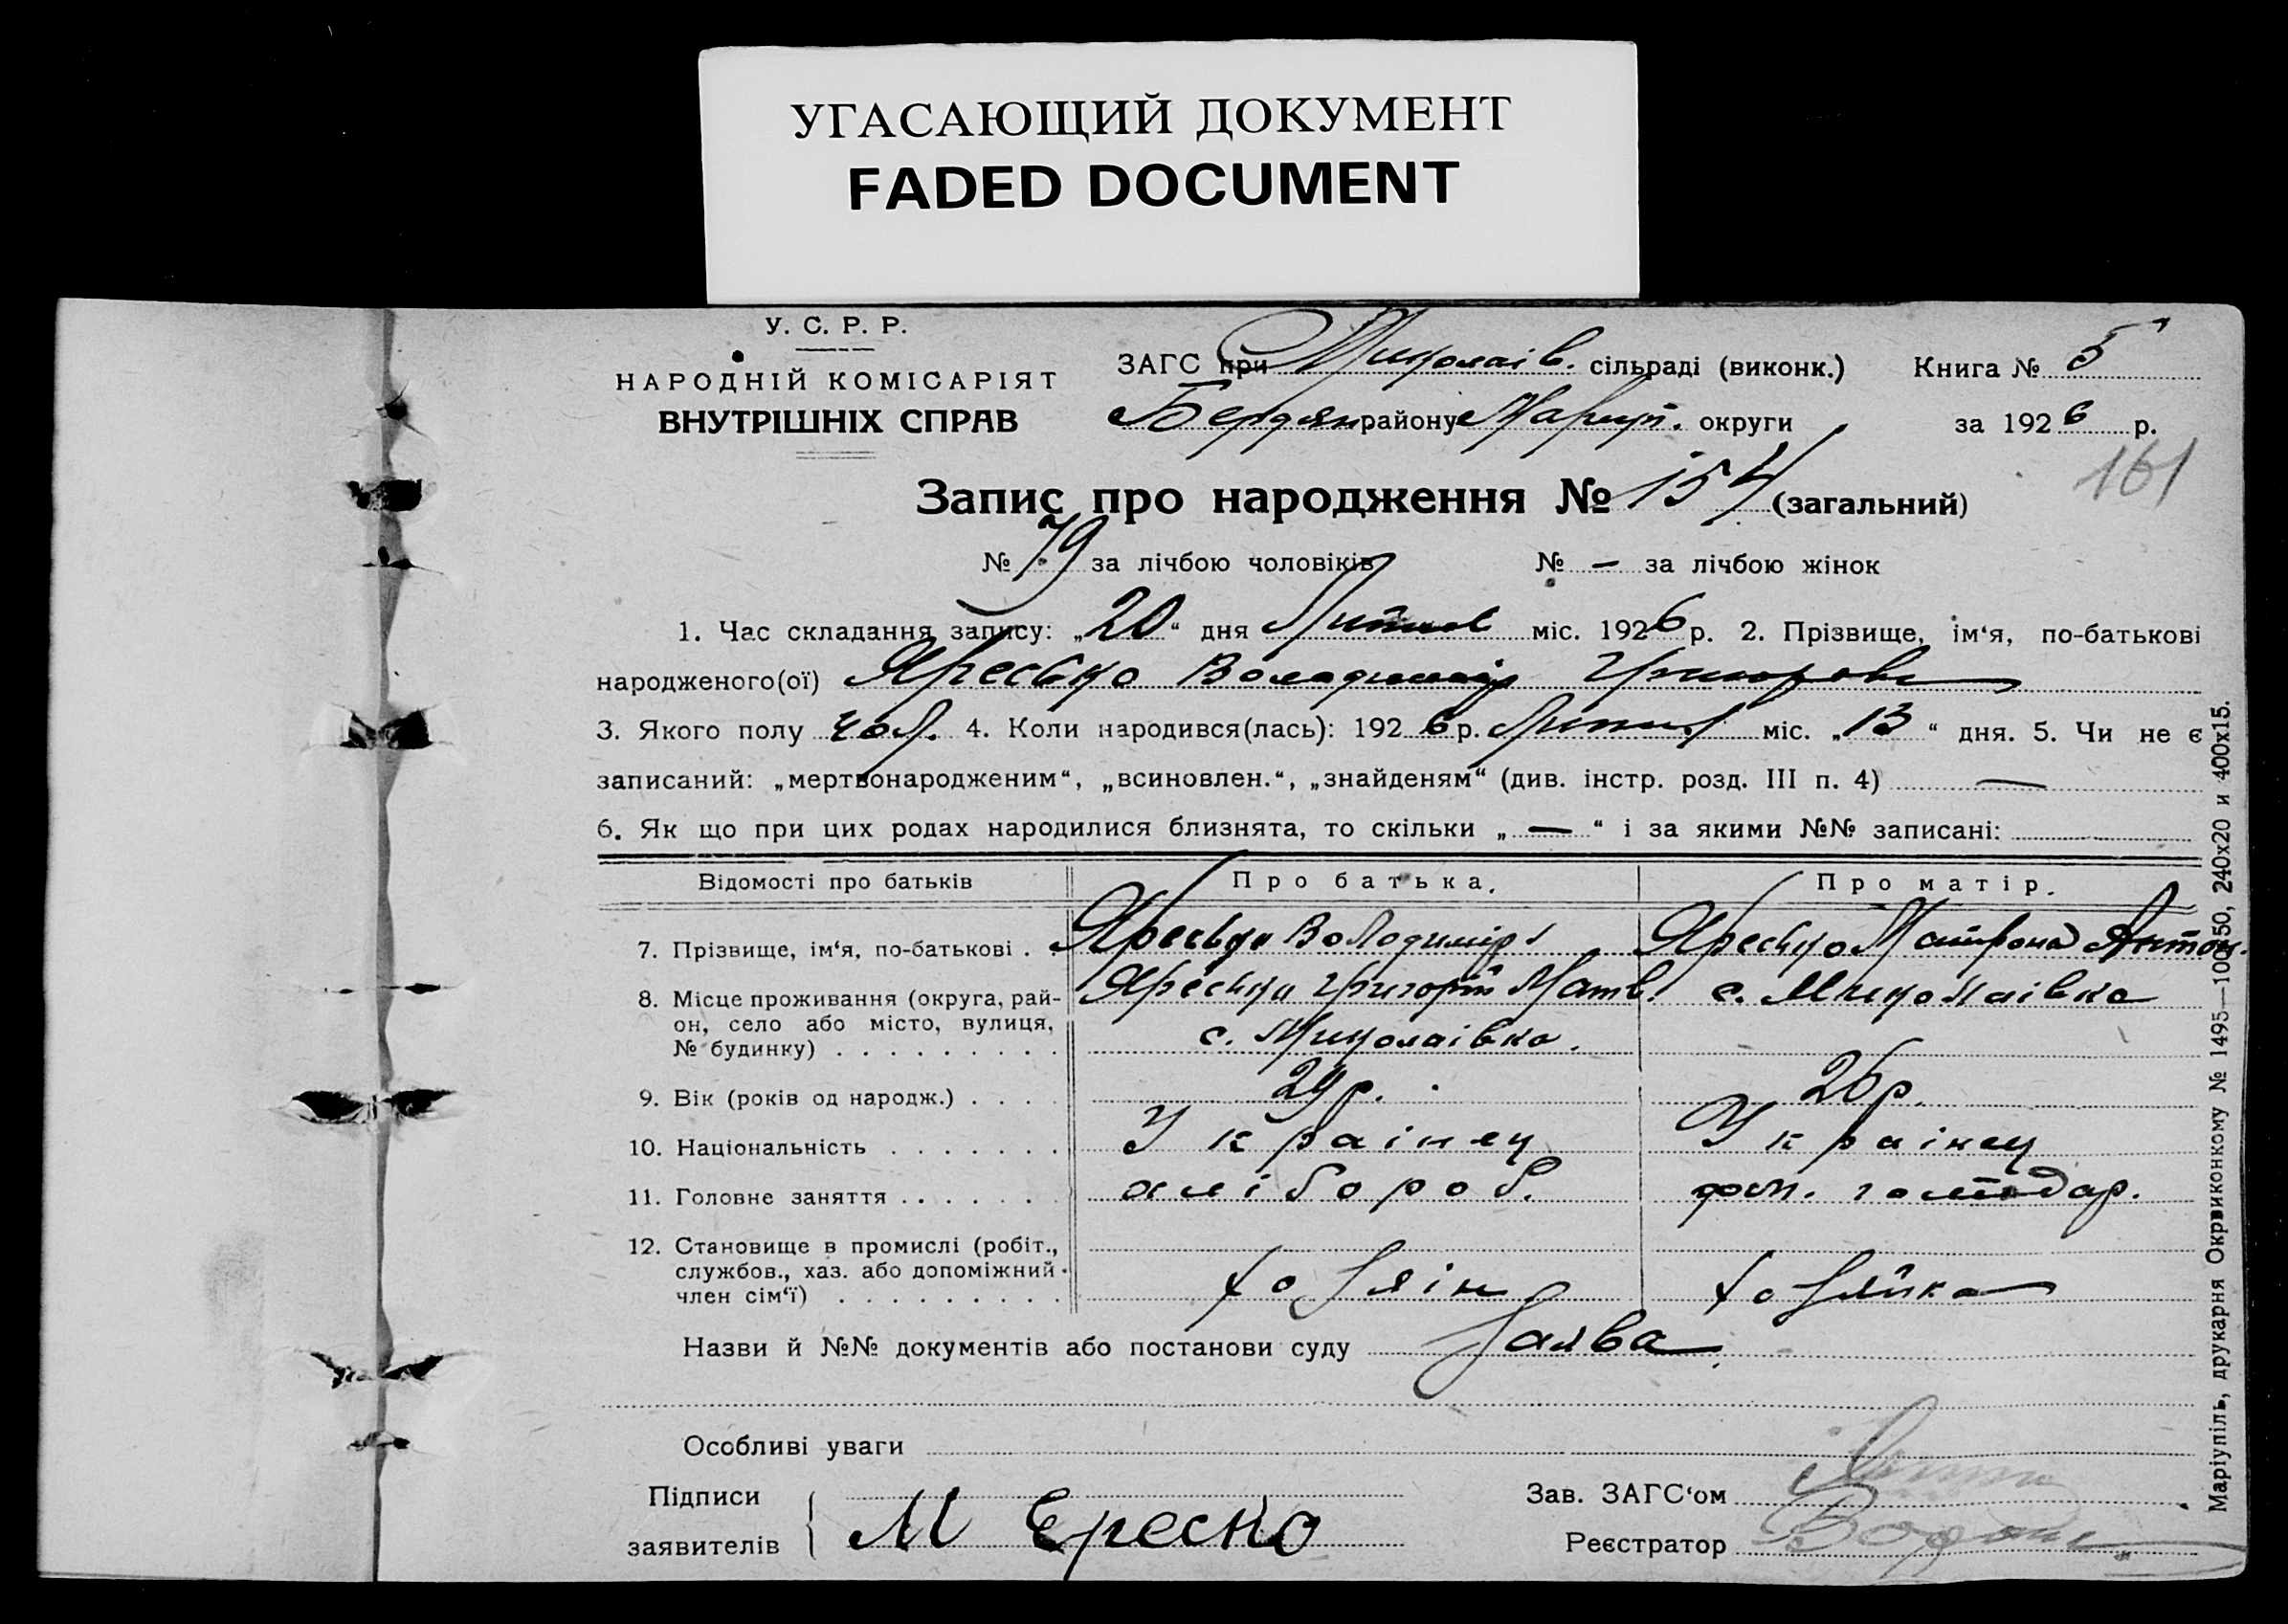 УГАСАЮЩИЙ ДОКУМЕНТ
FADED DOCUMENT
У. С. Р. Р.
НАРОДНІЙ КОМІСАРІЯТ
ВНУТРІШНІХ СПРАВ
ЗАГС при Миколаїв. сільраді (виконк.) Книга № 5
Бердян району Маріуп. округи за 1926 р.
161
Запис про народження № 154 (загальний)
№ 79 за лічбою чоловіків № — за лічбою жінок
1. Час складання запису: „20“ дня Липня міс. 1926 р. 2. Прізвище, ім‘я, по-батькові
народженого(ої) Яресько Володимир Григоров
3. Якого полу чол. 4. Коли народився(лась): 1926 р. Липня міс. „13“ дня. 5. Чи не є
записаний: „мертвонародженим“, „всиновлен.“, „знайденям“ (див. інстр. розд. III п. 4) —
6. Як що при цих родах народилися близнята, то скільки „—“ і за якими №№ записані:
Відомості про батьків Про батька. Про матір.
7. Прізвище, ім‘я, по-батькові . . Яресько Володимір Яресько Матрона Антон.
8. Місце проживання (округа, рай- Яресько Григорій Матв. с. Миколаівка
он, село або місто, вулиця, с. Миколаівка.
№ будинку) . . . . . . . . .
9. Вік (років од народж.) . . . . 29 р. 26 р.
10. Національність . . . . . . . Украінец Украінец
11. Головне заняття . . . . . . хлібороб. дом. господар.
12. Становище в промислі (робіт.,
службов., хаз. або допоміжний
член сім‘ї) . . . . . . . . . хазяін хазяйка
Назви й №№ документів або постанови суду Заява
Особливі уваги
Підписи Зав. ЗАГС‘ом
заявителів М Ереско Реєстратор
Маріупіль, друкарня Окрвиконкому № 1495—100x50, 240x20 и 400x15.